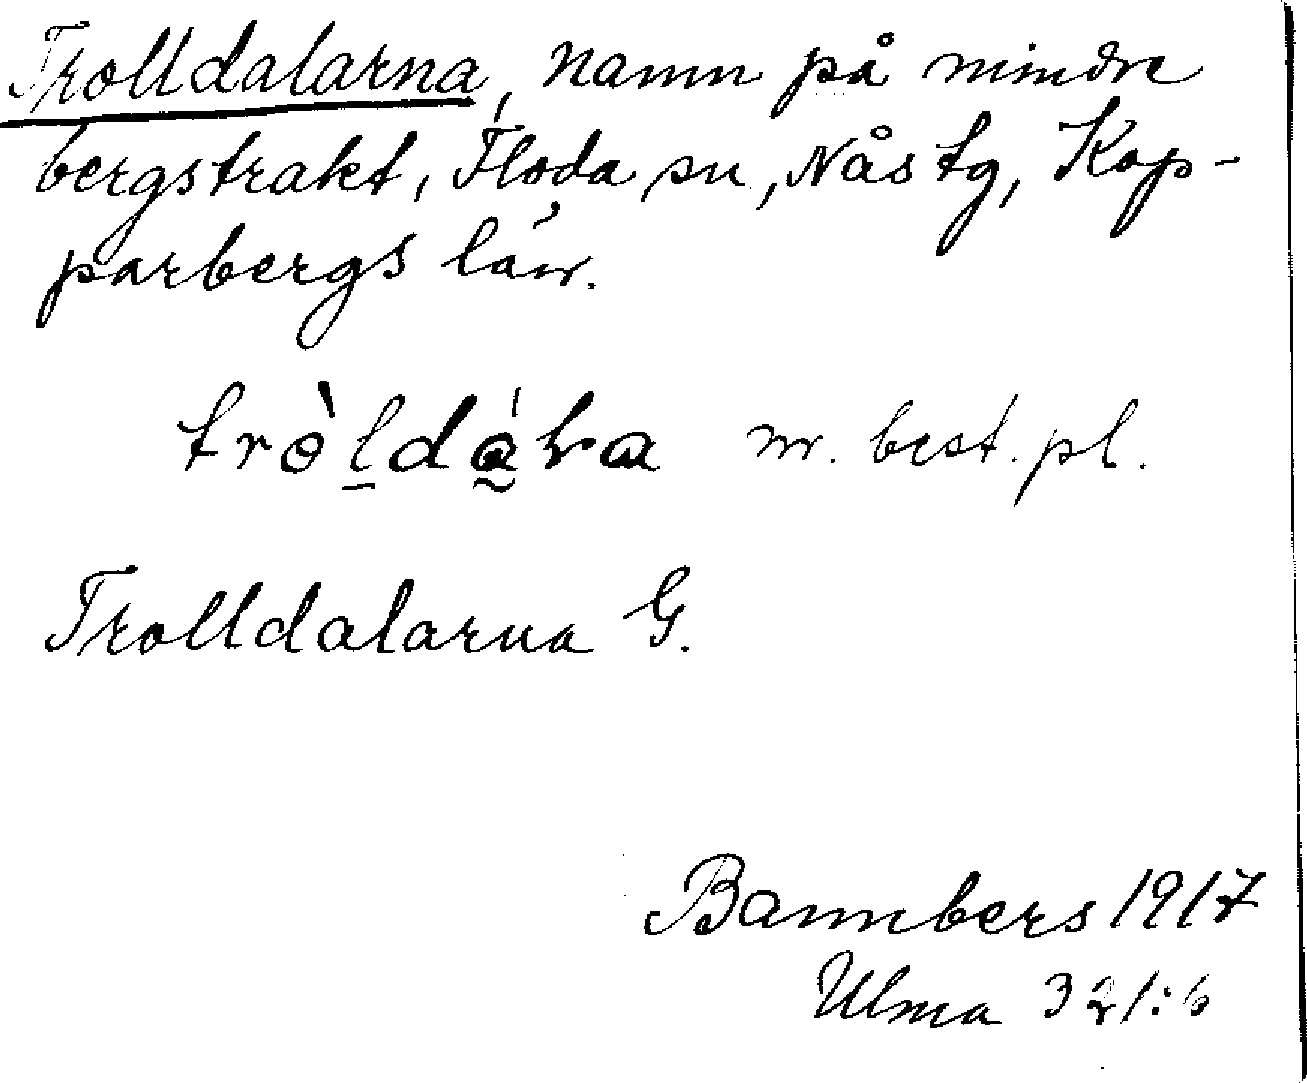 Trolldalarna, namn på mindre
bergstrakt, Floda sn, Nås tg, Kop-
parbergs län.
tròldára m. best. pl.
Trolldalarna G.
Bannbers 1917
Ulma 321:6